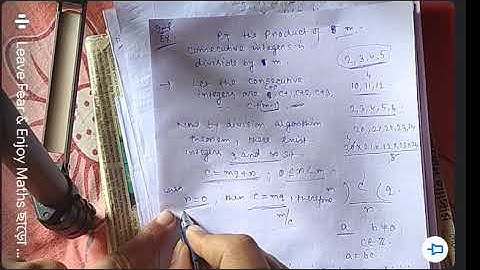 P.T the product of m
consecutive integers is
divisible by m.
→ Let the consecutive
integers are c, c+1, c+2, c+3,
Now by division algorithm
theorem, there exist
integers q and r s.t
c = mq + r, 0 ≤ r < m
when
r = 0, then c = mq, therefore
m/c
2, 3, 4, 5
4
10, 11, 12
2, 3, 4, 5, 6
20, 21, 22, 23, 24
m ) c ( q
r
a b ≠ 0
c ∈ Z
a = bc
Leave Fear & Enjoy Maths